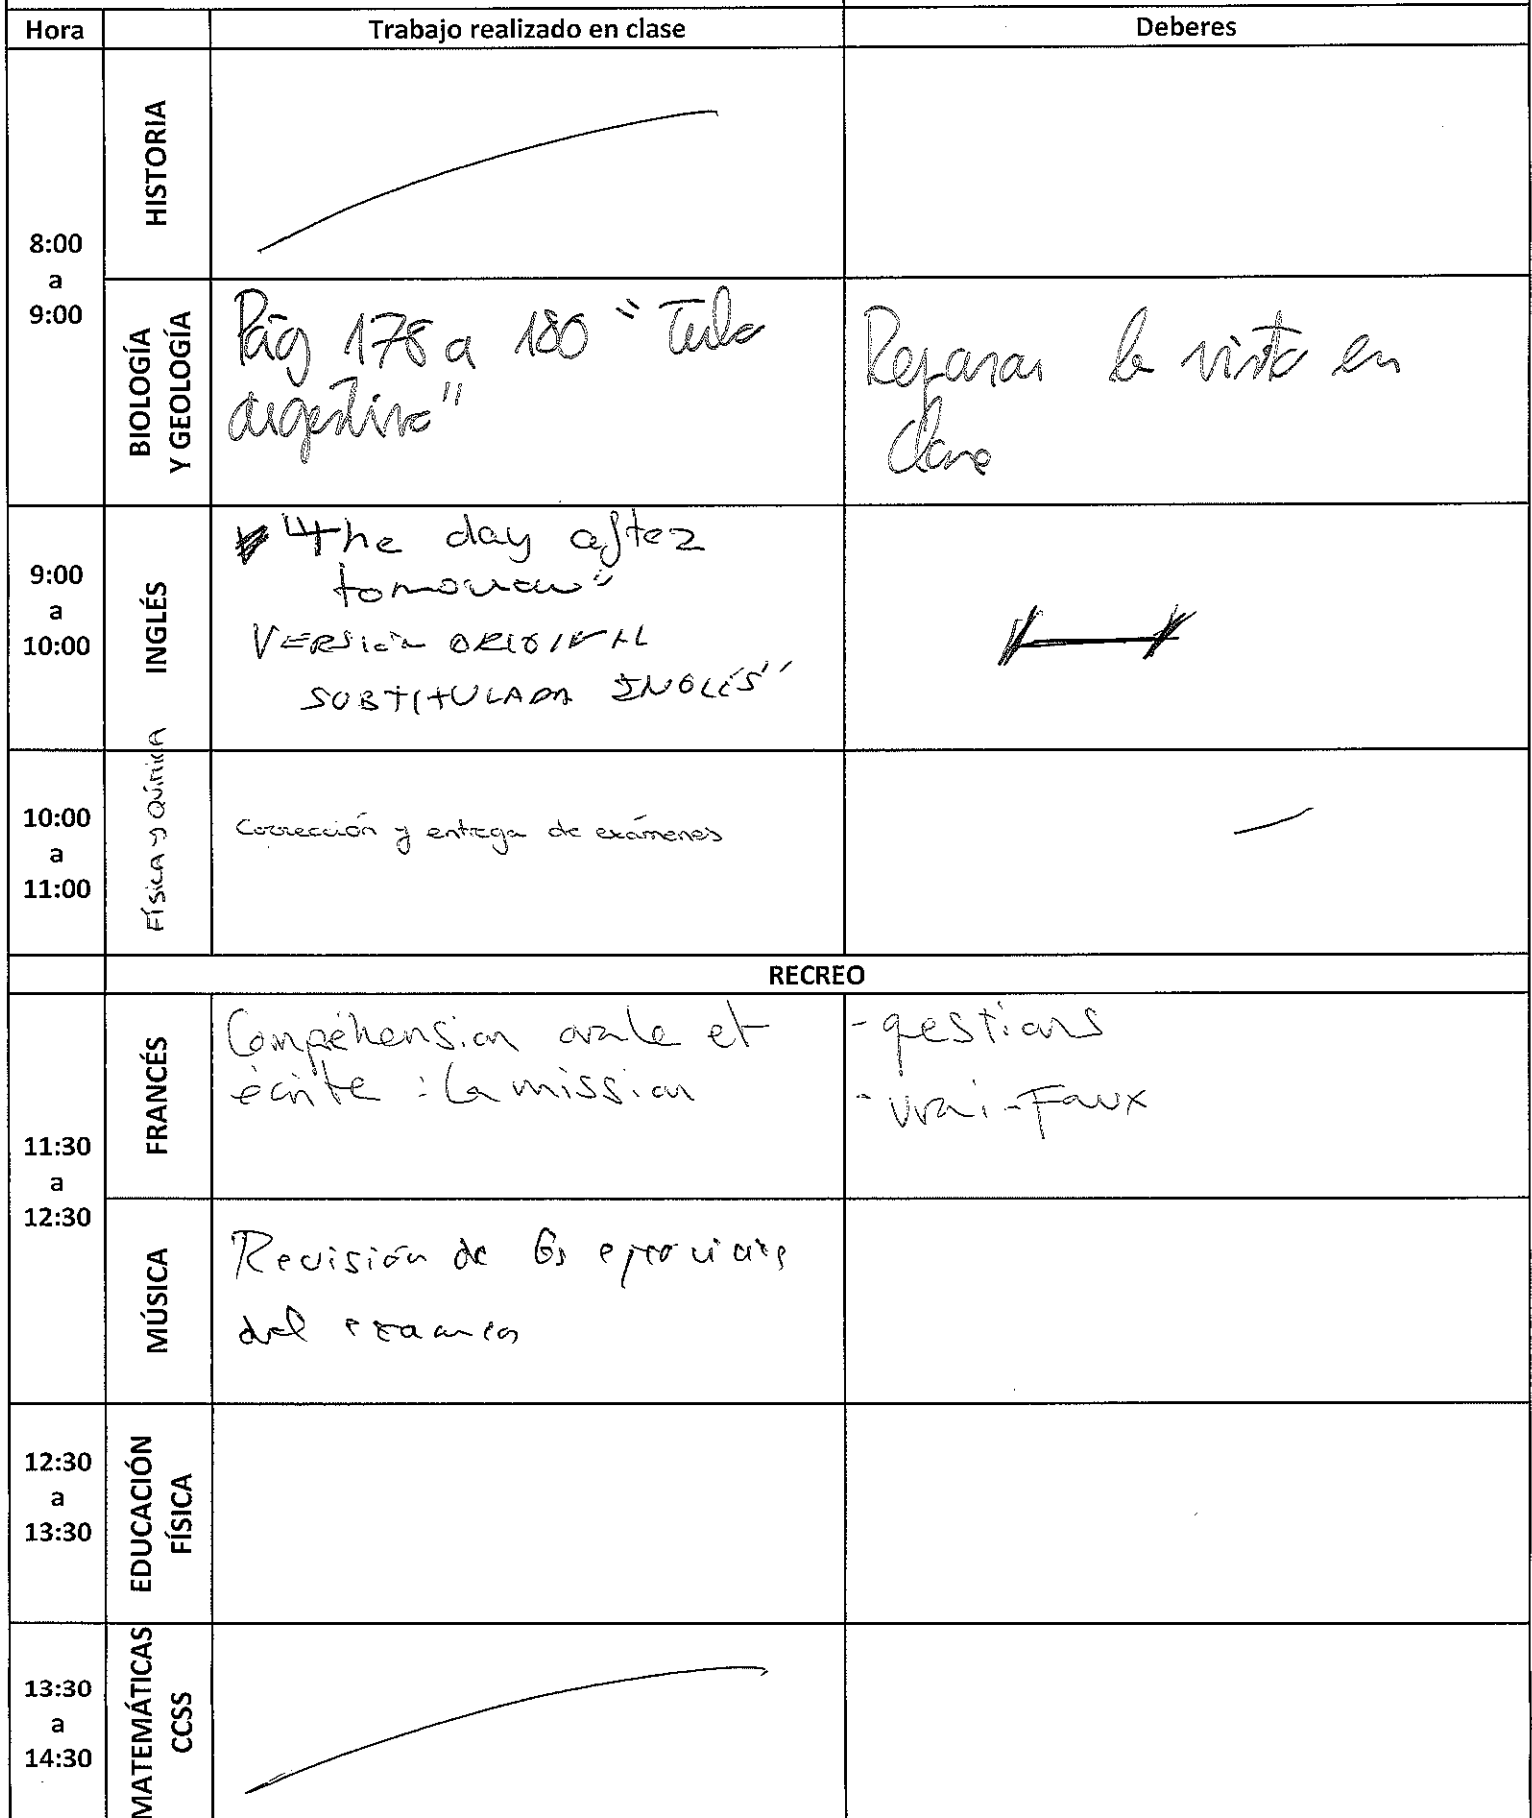 Hora Trabajo realizado en clase Deberes
HISTORIA
8:00
a
9:00
BIOLOGÍA
Y GEOLOGÍA
Pág 178 a 180 "Tubo
digestivo"
Repasar lo visto en
clase
9:00
a
10:00
INGLÉS
"The day after
tomorrow"
VERSIÓN ORIGINAL
SUBTITULADA INGLÉS"
10:00
a
11:00
Física y Química
Corrección y entrega de exámenes
RECREO
11:30
a
12:30
FRANCÉS
Compéhension orale et
écrite : la mission
- qestions
- vrai-Faux
MÚSICA
Revisión de los ejercicios
del examen
12:30
a
13:30
EDUCACIÓN
FÍSICA
13:30
a
14:30
MATEMÁTICAS
CCSS